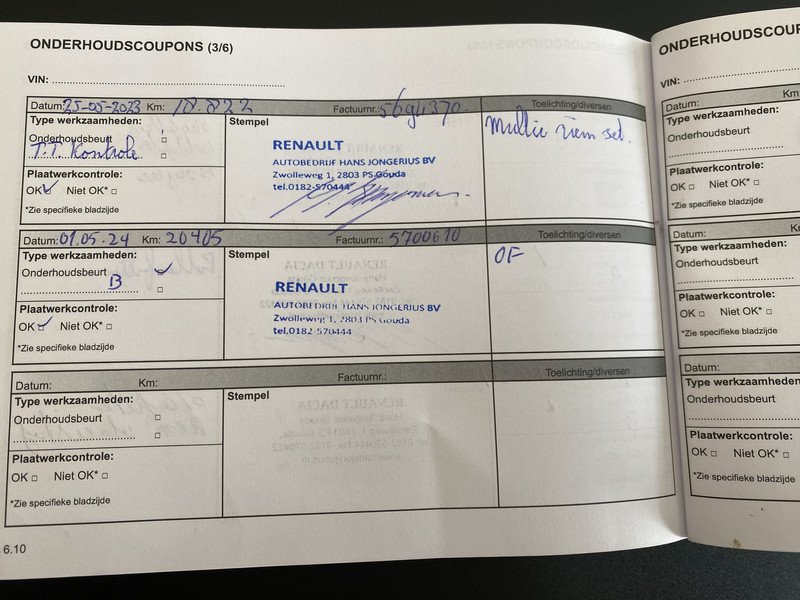 ONDERHOUDSCOUPONS (3/6)
VIN:
Datum: 25-05-2023 Km: 18.822 Factuurnr.: 5694370 Toelichting/diversen
Type werkzaamheden:
Onderhoudsbeurt
T.T. Kontrole
Plaatwerkcontrole:
OK Niet OK*
*Zie specifieke bladzijde
Stempel
RENAULT
AUTOBEDRIJF HANS JONGERIUS BV
Zwolleweg 1, 2803 PS Gouda
tel.0182-570444
Multie riem set.
Datum: 01.05.24 Km: 20405 Factuurnr.: 5700610 Toelichting/diversen
Type werkzaamheden:
Onderhoudsbeurt
B
Plaatwerkcontrole:
OK Niet OK*
*Zie specifieke bladzijde
Stempel
RENAULT
AUTOBEDRIJF HANS JONGERIUS BV
Zwolleweg 1, 2803 PS Gouda
tel.0182-570444
OF
Datum: Km: Factuurnr.: Toelichting/diversen
Type werkzaamheden:
Onderhoudsbeurt
Plaatwerkcontrole:
OK Niet OK*
*Zie specifieke bladzijde
Stempel
6.10
ONDERHOUDSCOUP
VIN:
Datum:
Type werkzaamheden:
Onderhoudsbeurt
Plaatwerkcontrole:
OK Niet OK*
*Zie specifieke bladzijde
Datum: Km:
Type werkzaamheden:
Onderhoudsbeurt
Plaatwerkcontrole:
OK Niet OK*
*Zie specifieke bladzijde
Datum:
Type werkzaamheden
Onderhoudsbeurt
Plaatwerkcontrole:
OK Niet OK*
*Zie specifieke bladzijde